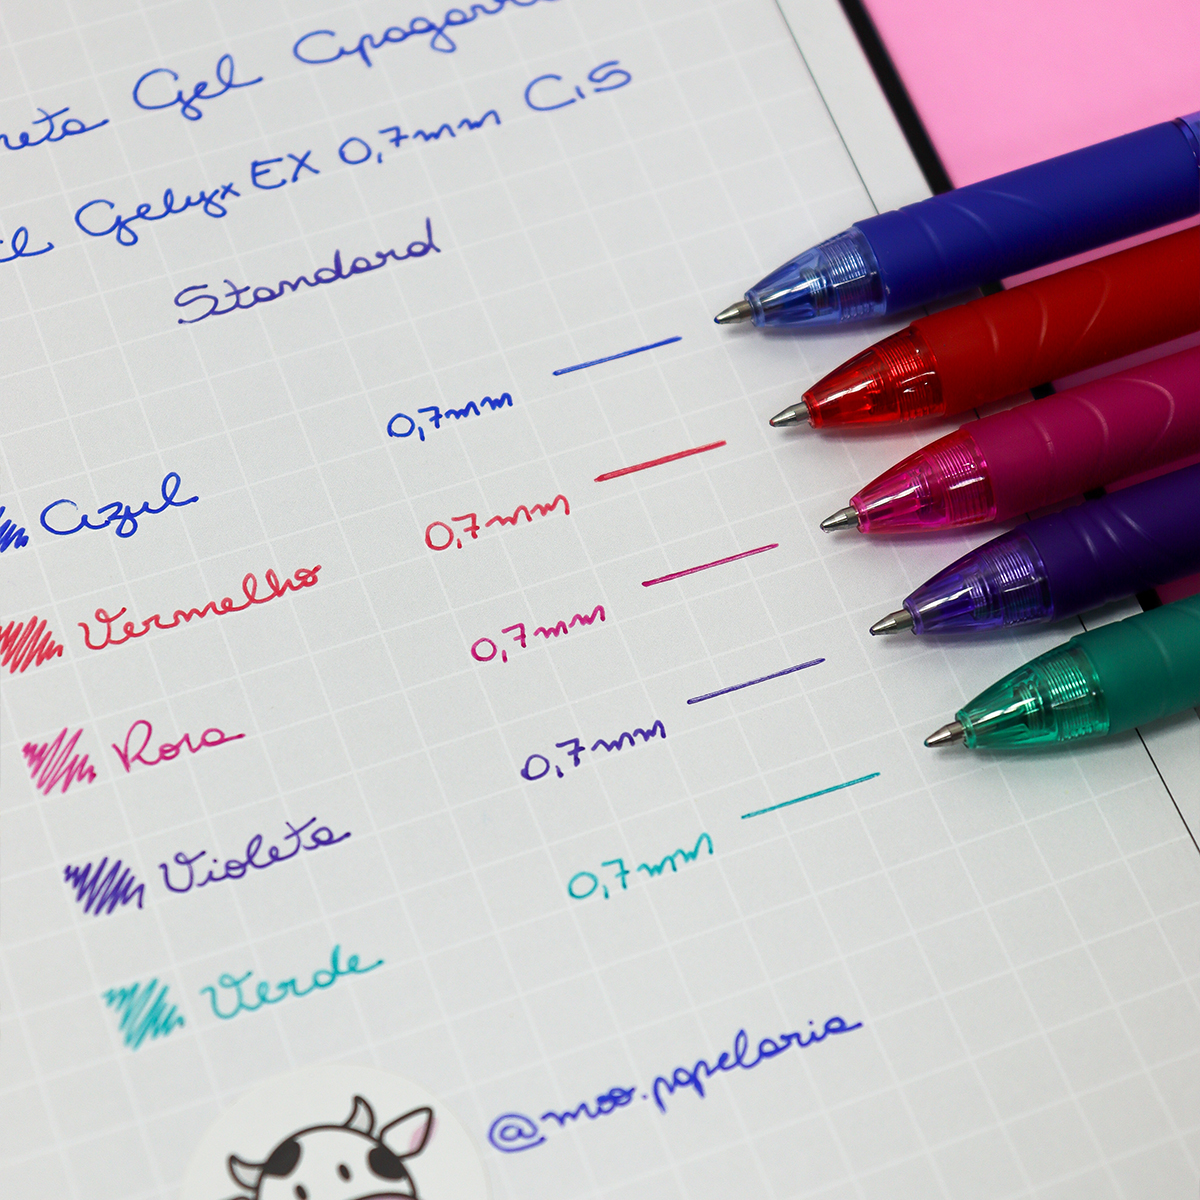 Gel
Gelyx EX 0,7mm CiS
Standard
0,7mm
Azul
0,7mm
Vermelho
0,7mm
Rosa
0,7mm
Violeta
0,7mm
Verde
@moo.papelaria